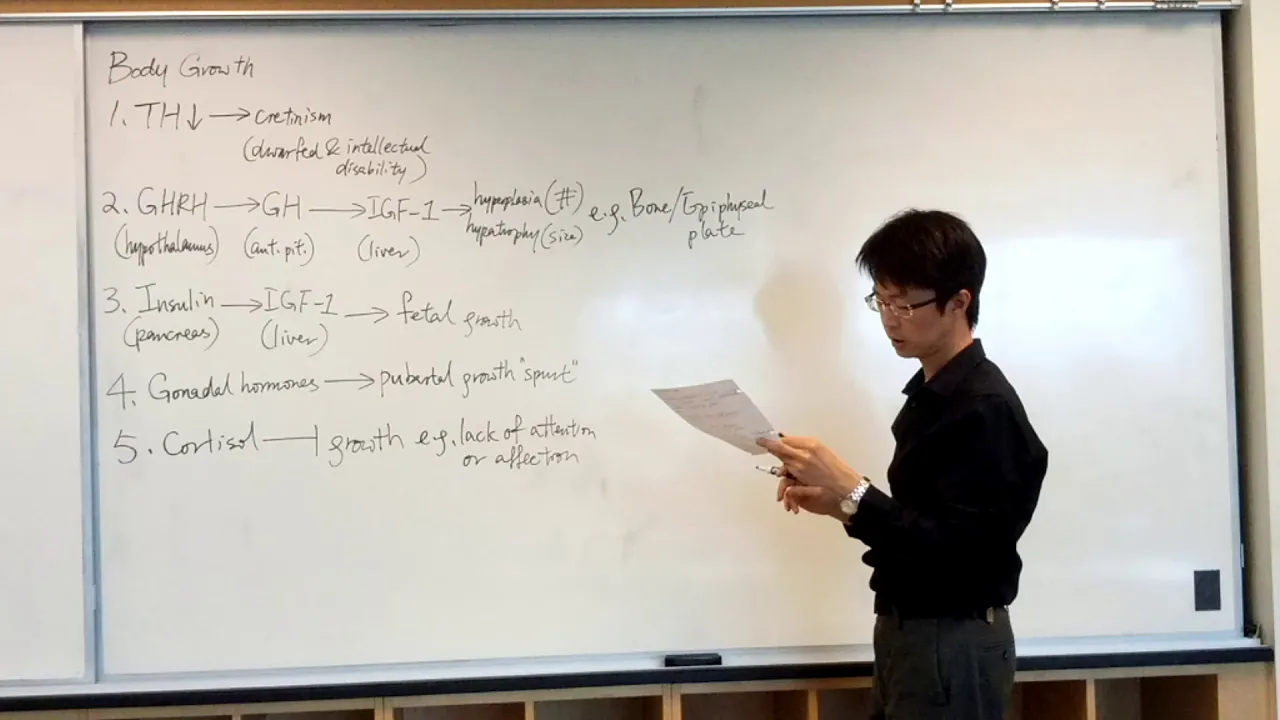 Body Growth
1. TH↓ → cretinism
(dwarfed & intellectual
disability)
2. GHRH → GH → IGF-1 → hyperplasia (#) e.g. Bone/Epiphyseal
hypatrophy (size) plate
(hypothalamus) (ant. pit.) (liver)
3. Insulin → IGF-1 → fetal growth
(pancreas) (liver)
4. Gonadal hormones → pubertal growth "spurt"
5. Cortisol ⊣ growth e.g. lack of attention
or affection